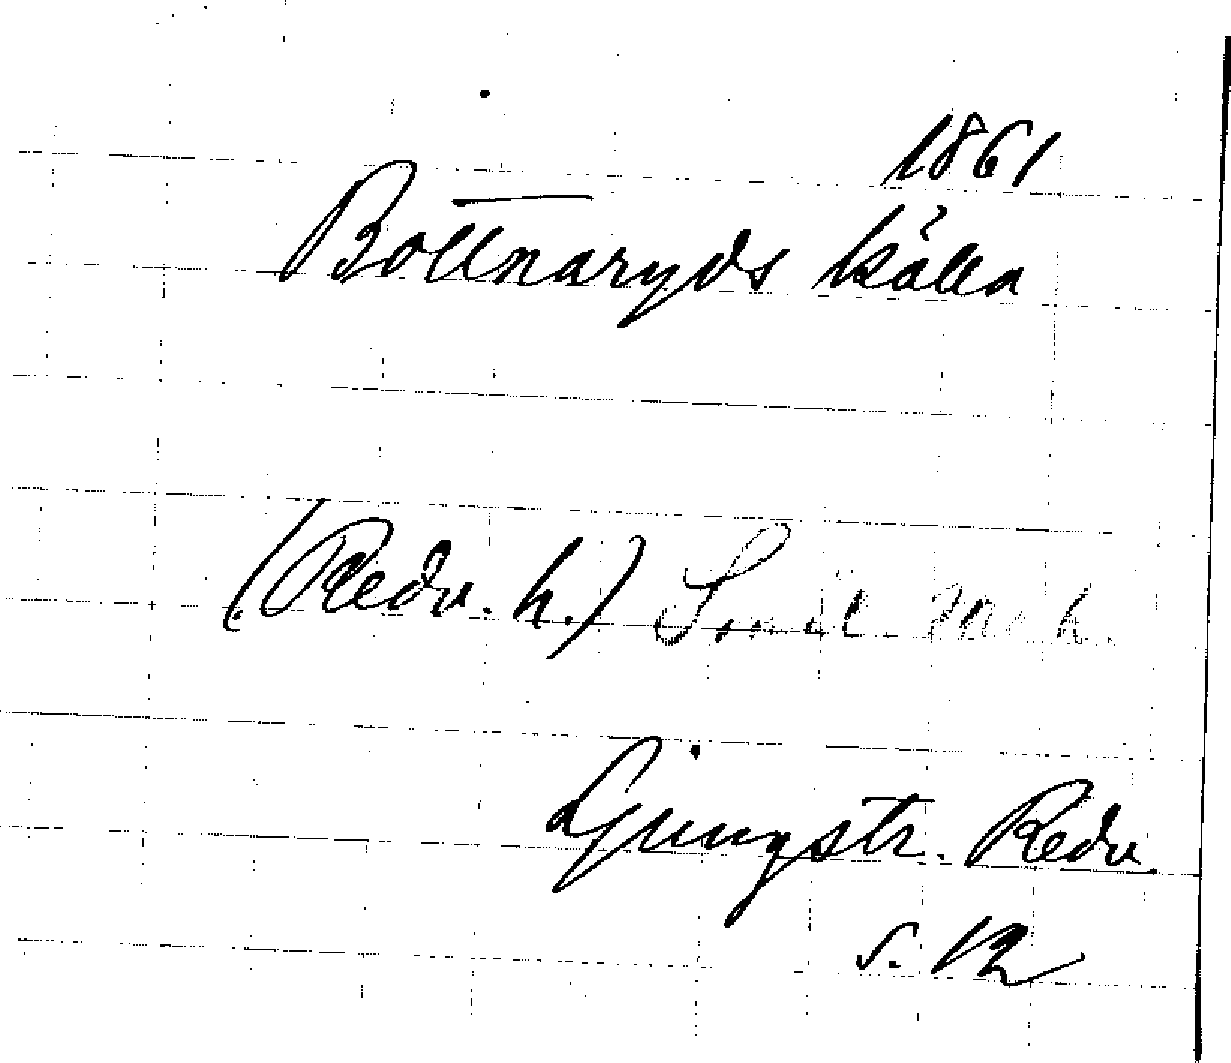 1861
Bottnaryds källa
(Redv. h.)
Ljungstr. Redv.
s. 12